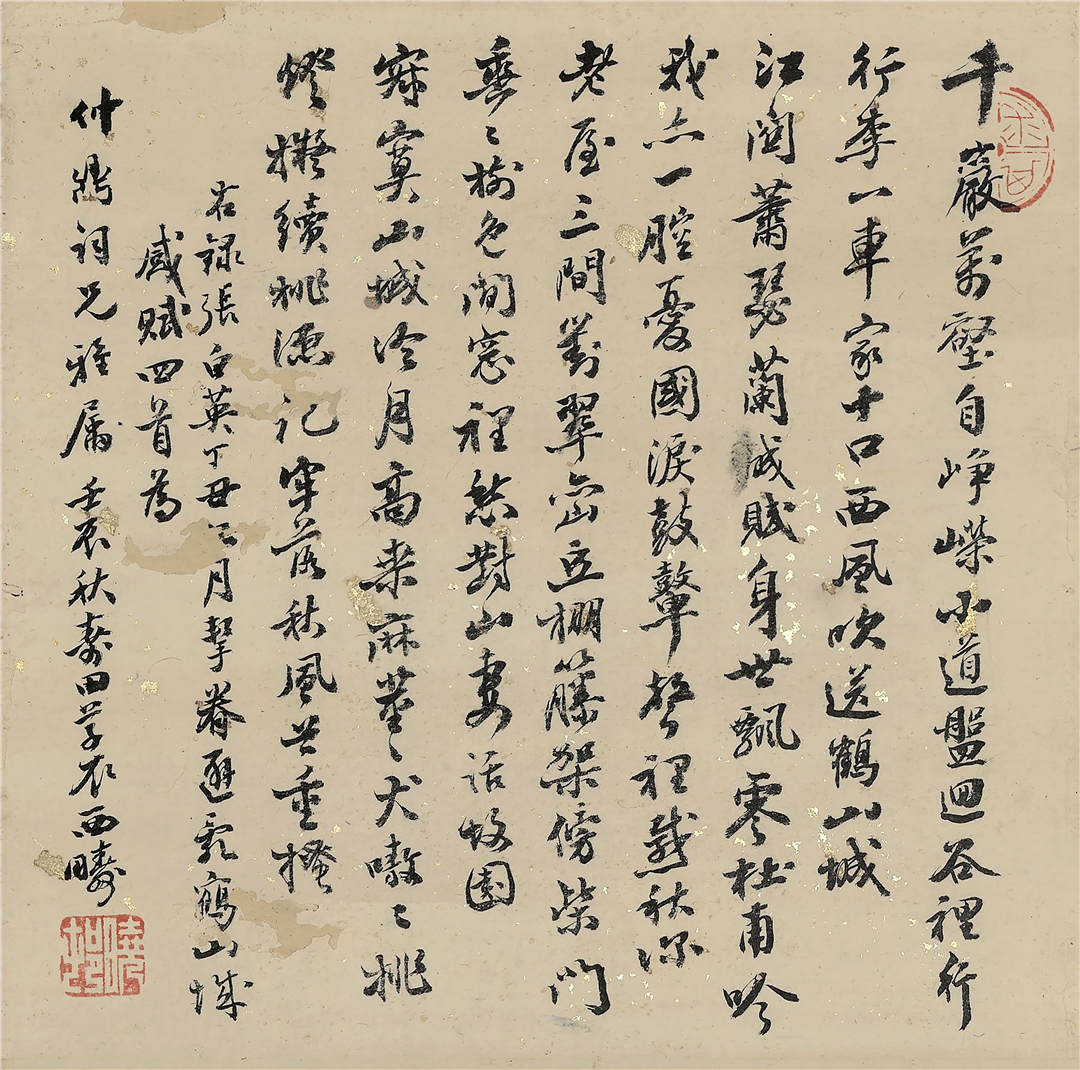 千巖萬壑自崢嶸小道盤迴谷裡行
行李一車家十口西風吹送鶴山城
江關蕭瑟蘭成賦身世飄零杜甫吟
我亦一腔憂國淚鼓鼙聲裡感秋深
老屋三間對翠巒豆棚籐架傍柴門
垂〻樹色閒窓裡愁對山妻話故園
寂寞山城冷月高桑麻 〻犬嗷〻挑
燈撥續桃源記牢落秋風首重搔
右錄張白英丁丑 月挈眷避亂鶴山城
感賦四首為
仲鼎詞兄雅属壬辰秋壽田學衣西疇